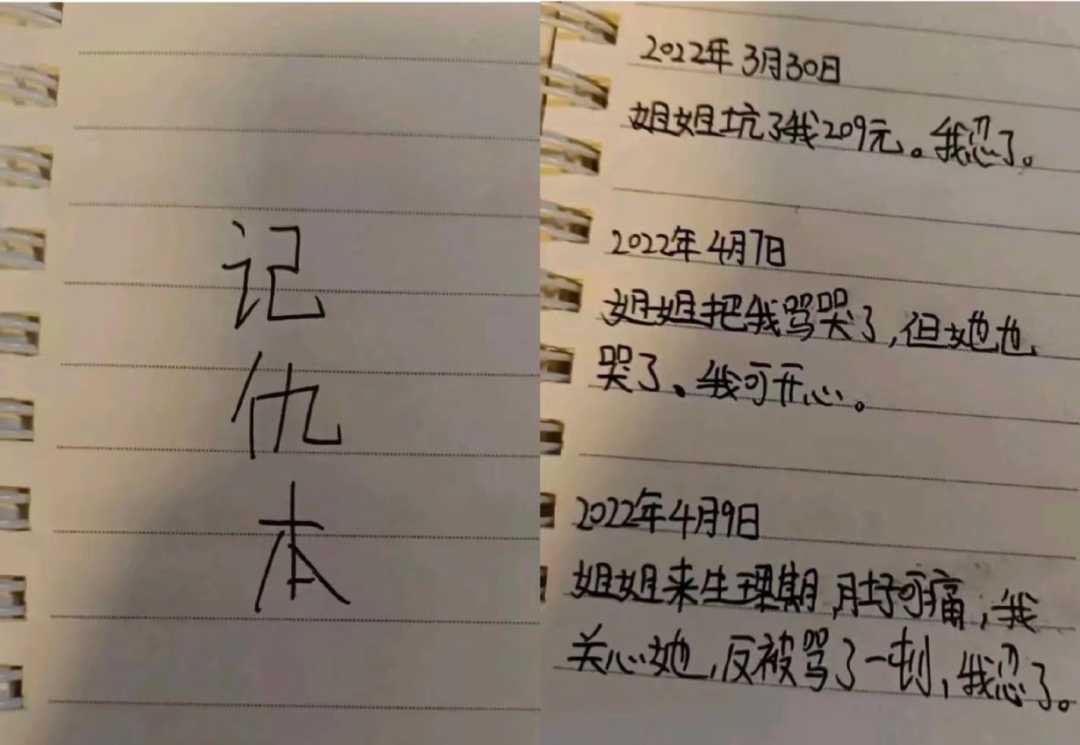 记仇本
2022年3月30日
姐姐坑了我209元。我忍了。
2022年4月7日
姐姐把我骂哭了,但她也
哭了。我可开心。
2022年4月9日
姐姐来生理期,肚子可痛,我
关心她,反被骂了一顿,我忍了。